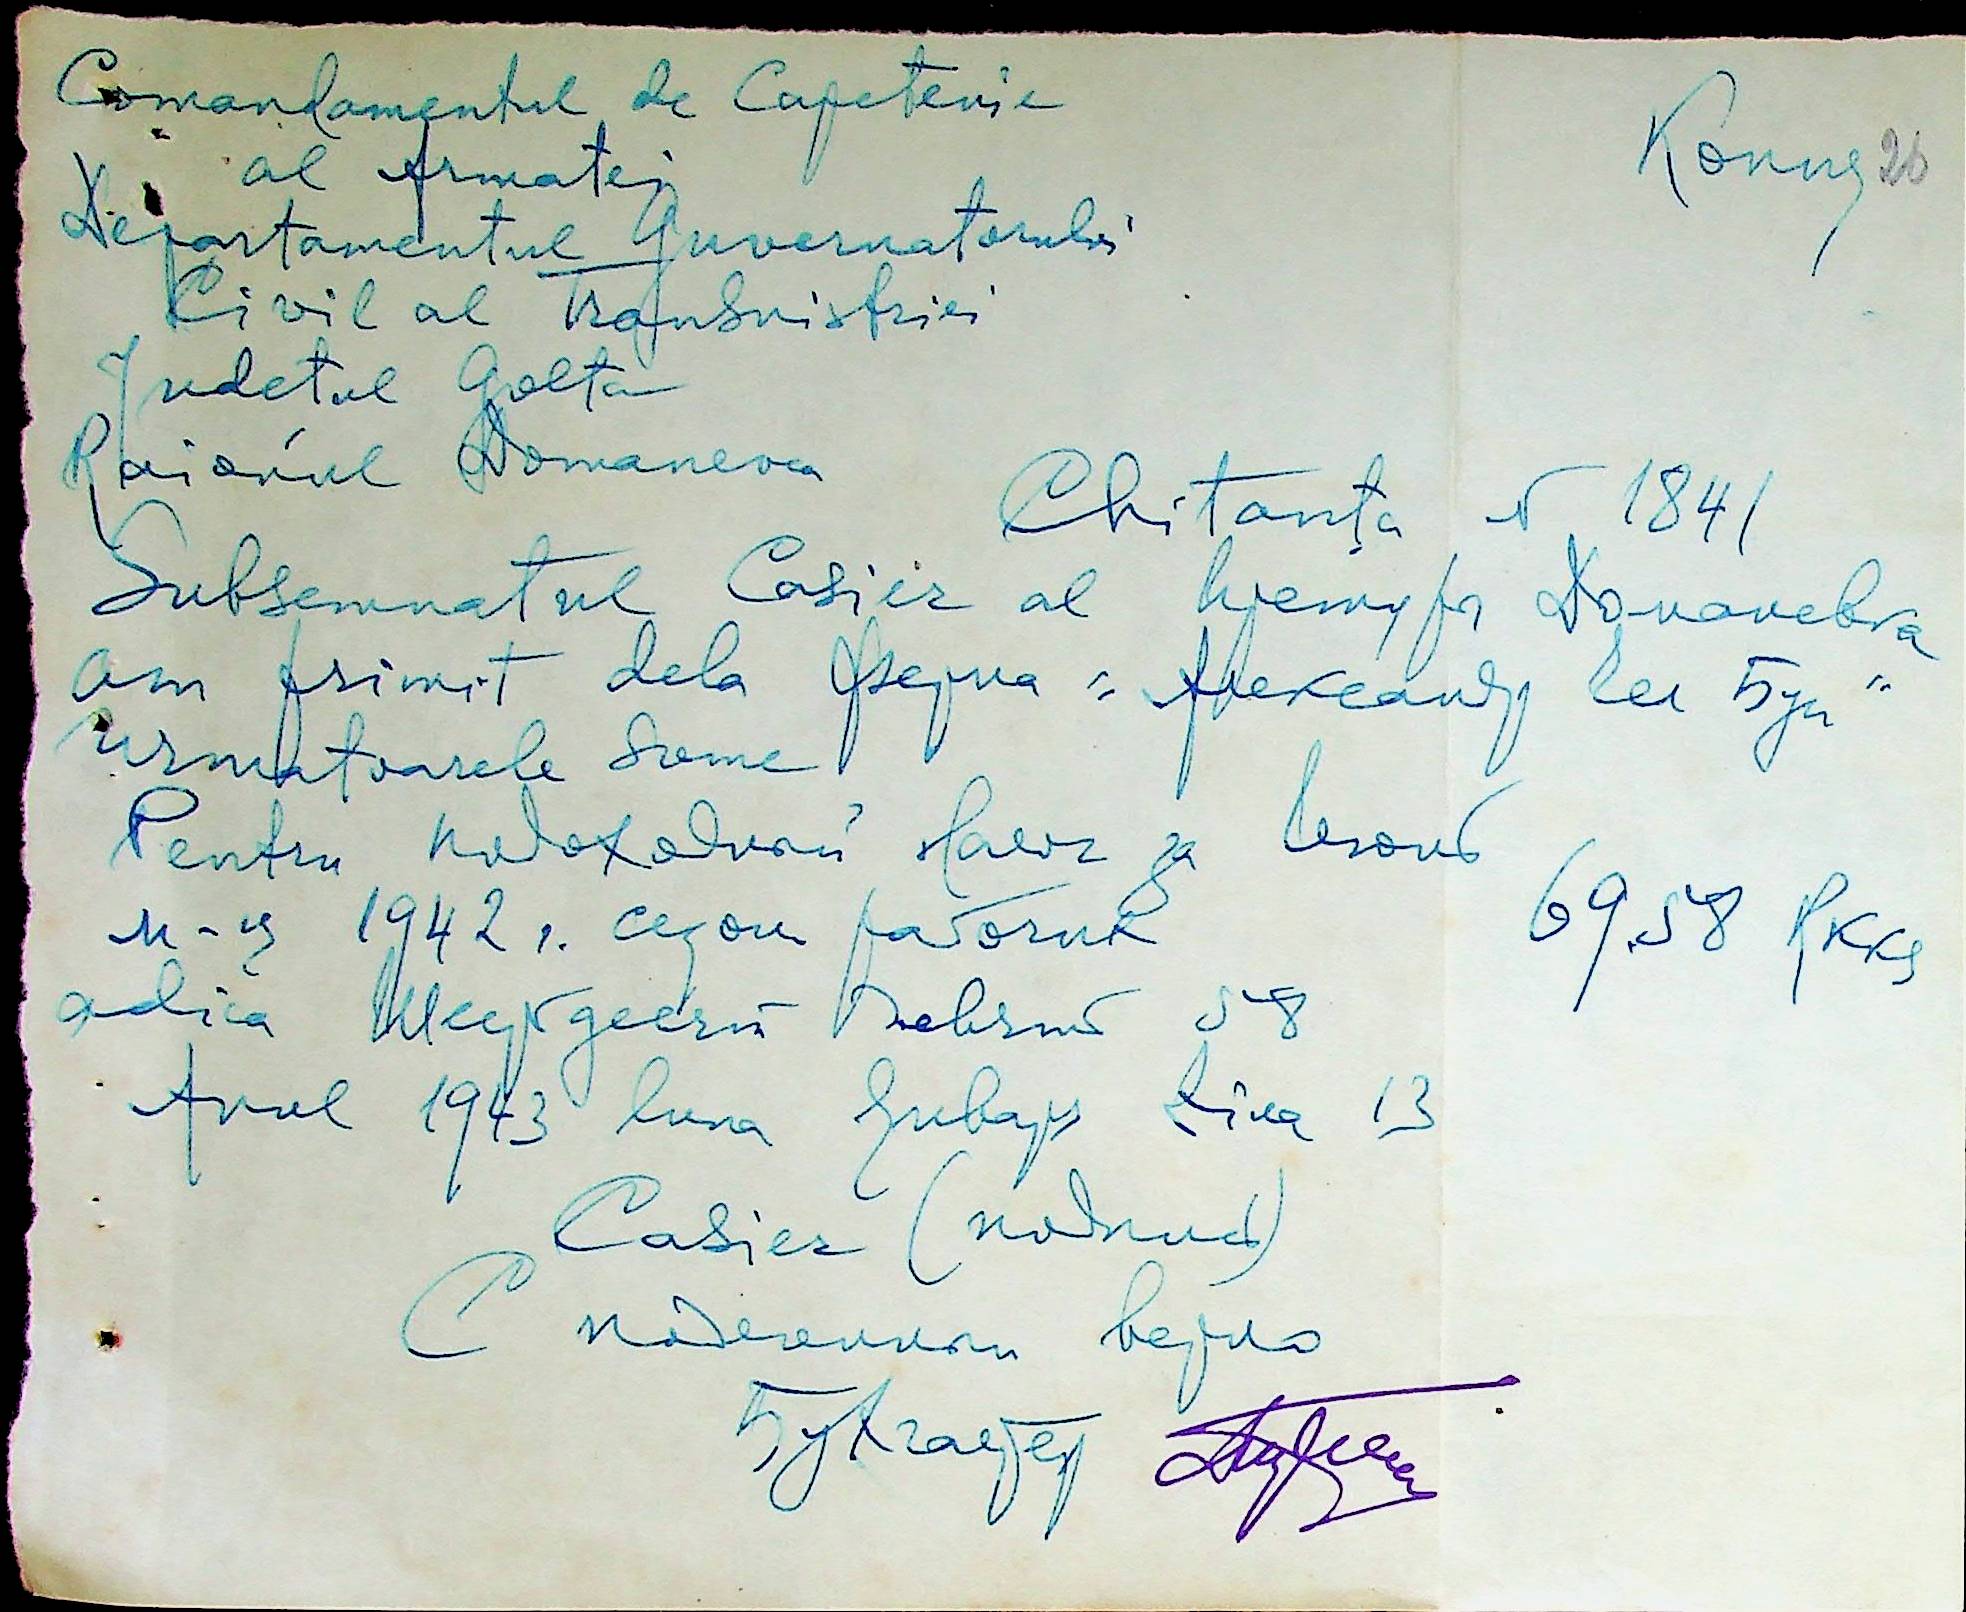 Comandamentul de Capetenie
al Armatei
Копия 26
Departamentul Guvernatorului
Civil al Transnistriei
Judetul Golta
Raionul Domanevca
Chitanţa N 1841
Subsemnatul Casier al Преторы Доманевка
am primit dela Ферма "Александр Чел Бун"
Urmatoarele some
Pentru подоходный налог за Июнь
м-ц 1942 г. сезон работник 69.58 RKKS
adica Шестьдесят девять 58
Anul 1943 luna Январь Ziua 13
Casier (подпись)
С подлинным верно
Бухгалтер